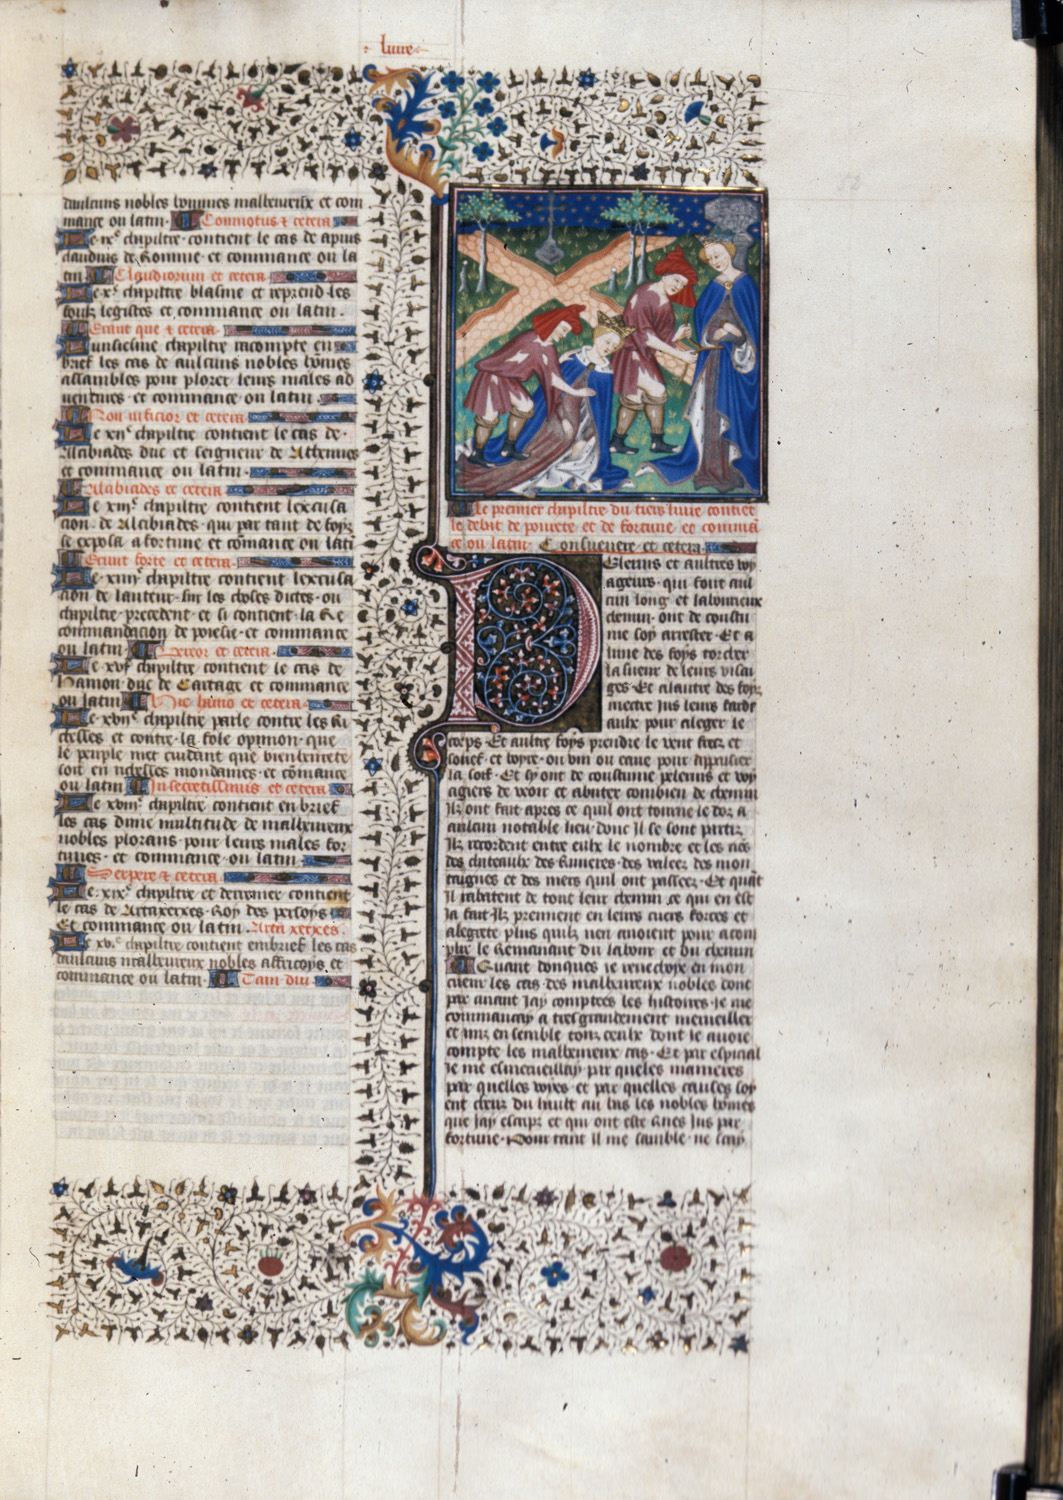 liure
daulcuns nobles hommes malheureux et com
mance ou latin. Conmotus & cetera
Le ixe chapitre contient le cas de apius
claudius de Romme et commance ou la
tin Claudiorum et cetera
Le xe chapitre blasme et reprend les
foulz legistes et commance ou latin.
Erant que & cetera
L unsiesme chapitre racompte en
brief les cas de aulcuns nobles hommes
assambles pour plorer leurs males ad
uentures et commance ou latin.
Non inficior et cetera
Le xiie chapitre contient le cas de
Alcibiades duc et seigneur de Athennes
et commance ou latin.
Alcibiades et cetera
Le xiiie chapitre contient lexcusa
cion de Alcibiades qui par tant de foys
se exposa a fortune et commance ou lati
Erunt forte et cetera
Le xiiiie chapitre contient lexcusa
cion de lauteur sur les choses dictes ou
chapitre precedent et si contient la Re
commandacion de poiesie et commance
ou latin Vereor et cetera
Le xvie chapitre contient le cas de
Hamon duc de Cartage et commance
ou latin Hic hanno et cetera
Le xviie chapitre parle contre les Ri
chesses et contre la fole opinion que
le peuple met cuidant que bieneurete
soit en richesses mondaines et commance
ou latin In secretissimis et cetera
Le xviiie chapitre contient en brief
les cas dune multitude de malheureux
nobles plorans pour leurs males for
tunes et commance ou latin
Serpere & cetera
Le xixe chapitre et derrenier contient
le cas de Artaxerxes Roy des persoys
Et commance ou latin. Arta xerxes.
Le xve chapitre contient en brief les cas
daulcuns malheureux nobles affricoys et
commance ou latin Tam diu
Le premier chapitre du tiers liure contiet
le debat de pourete et de fortune et comma
ce ou latin. Consueuere et cetera
Pelerins et aultres voy
ageurs qui font aul
cun long et laborieux
chemin ont de coustu
me soy arrester Et a
lune des foys torcher
la sueur de leurs visai
ges Et alautre des foys
mectre jus leurs farde
aulx pour aleger le
corps Et aultre foys prendre le vent frez et
souef et boyre ou vin ou eaue pour appaiser
la soif Et sy ont de coustume pelerins et voy
agiers de veoir et aduiter combien de chemin
Ilz ont fait apres ce quil ont tourne le doz a
aulcun notable lieu dont Il se sont partiz
Ilz recordent entre eulx le nombre et les nos
des chateaulx des Riuieres des valees des mon
taignes et des mers quil ont passees Et quat
Il rabatent de tout leur chemin ce qui en est
Ja fait Ilz prennent en leurs cuers forces et
alegrete plus quilz nen auoient pour acom
plir le Remanant du labour et du chemin
Quant donques ie remechoye en mon
cueur les cas des malheureux nobles dont
par auant Jay comptees les histoires Je me
commancay a tresgrandement merueiller
et mis en semble touz ceulx dont je auoie
compte les malheureux cas Et par especial
Je me esmerueillay par queles manieres
par quelles voyes et par quelles causes soy
ent cheuz du hault au bas les nobles homes
que Jay escrips et qui ont este Rues Jus par
fortune. Pour tant il me samble ne scay